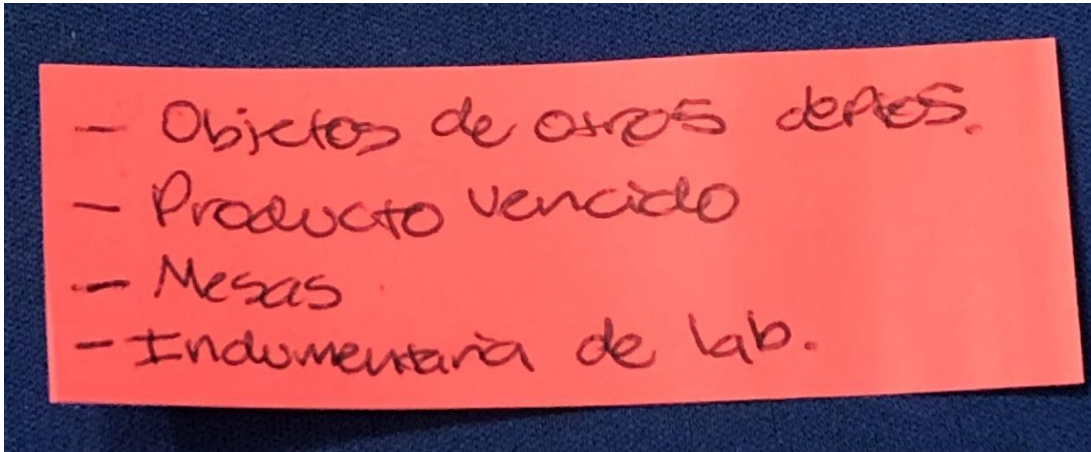 - Objetos de otros deptos.
- Producto vencido
- Mesas
- Indumentaria de lab.